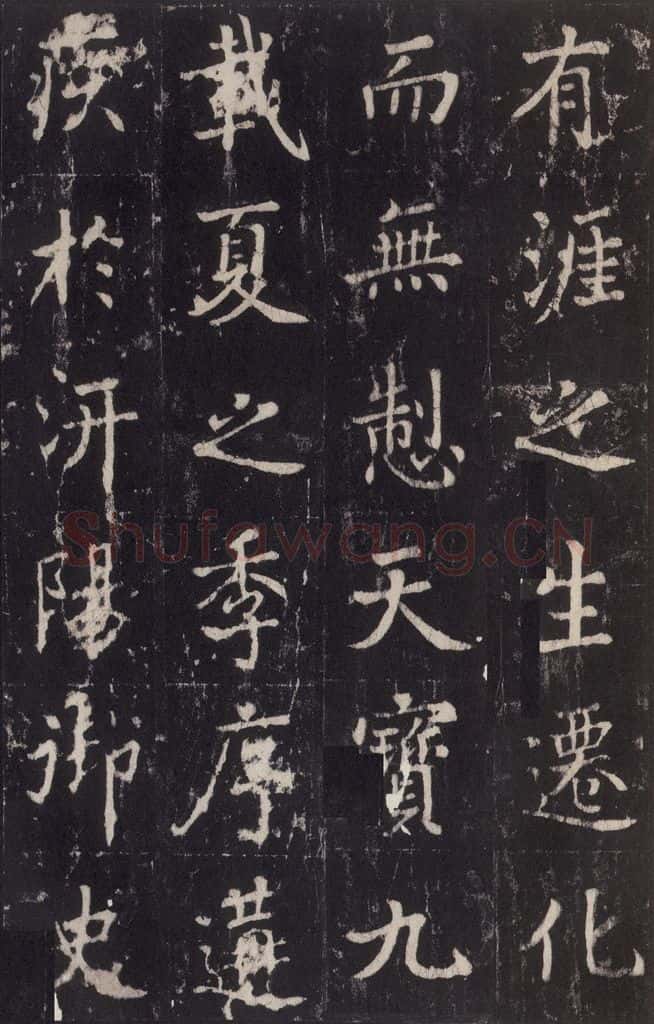 有涯之生遷化
而無天寶九
載夏之季序遘
疾於汧陽御史
Shufawang.CN